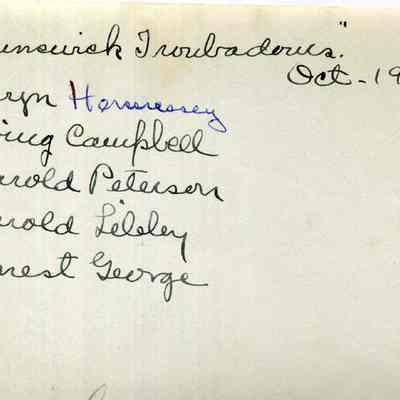 unswick Troubadours."
Oct - 19
ryn Hennessey
ing Campbell
rold Peterson
rold Libbey
nest George